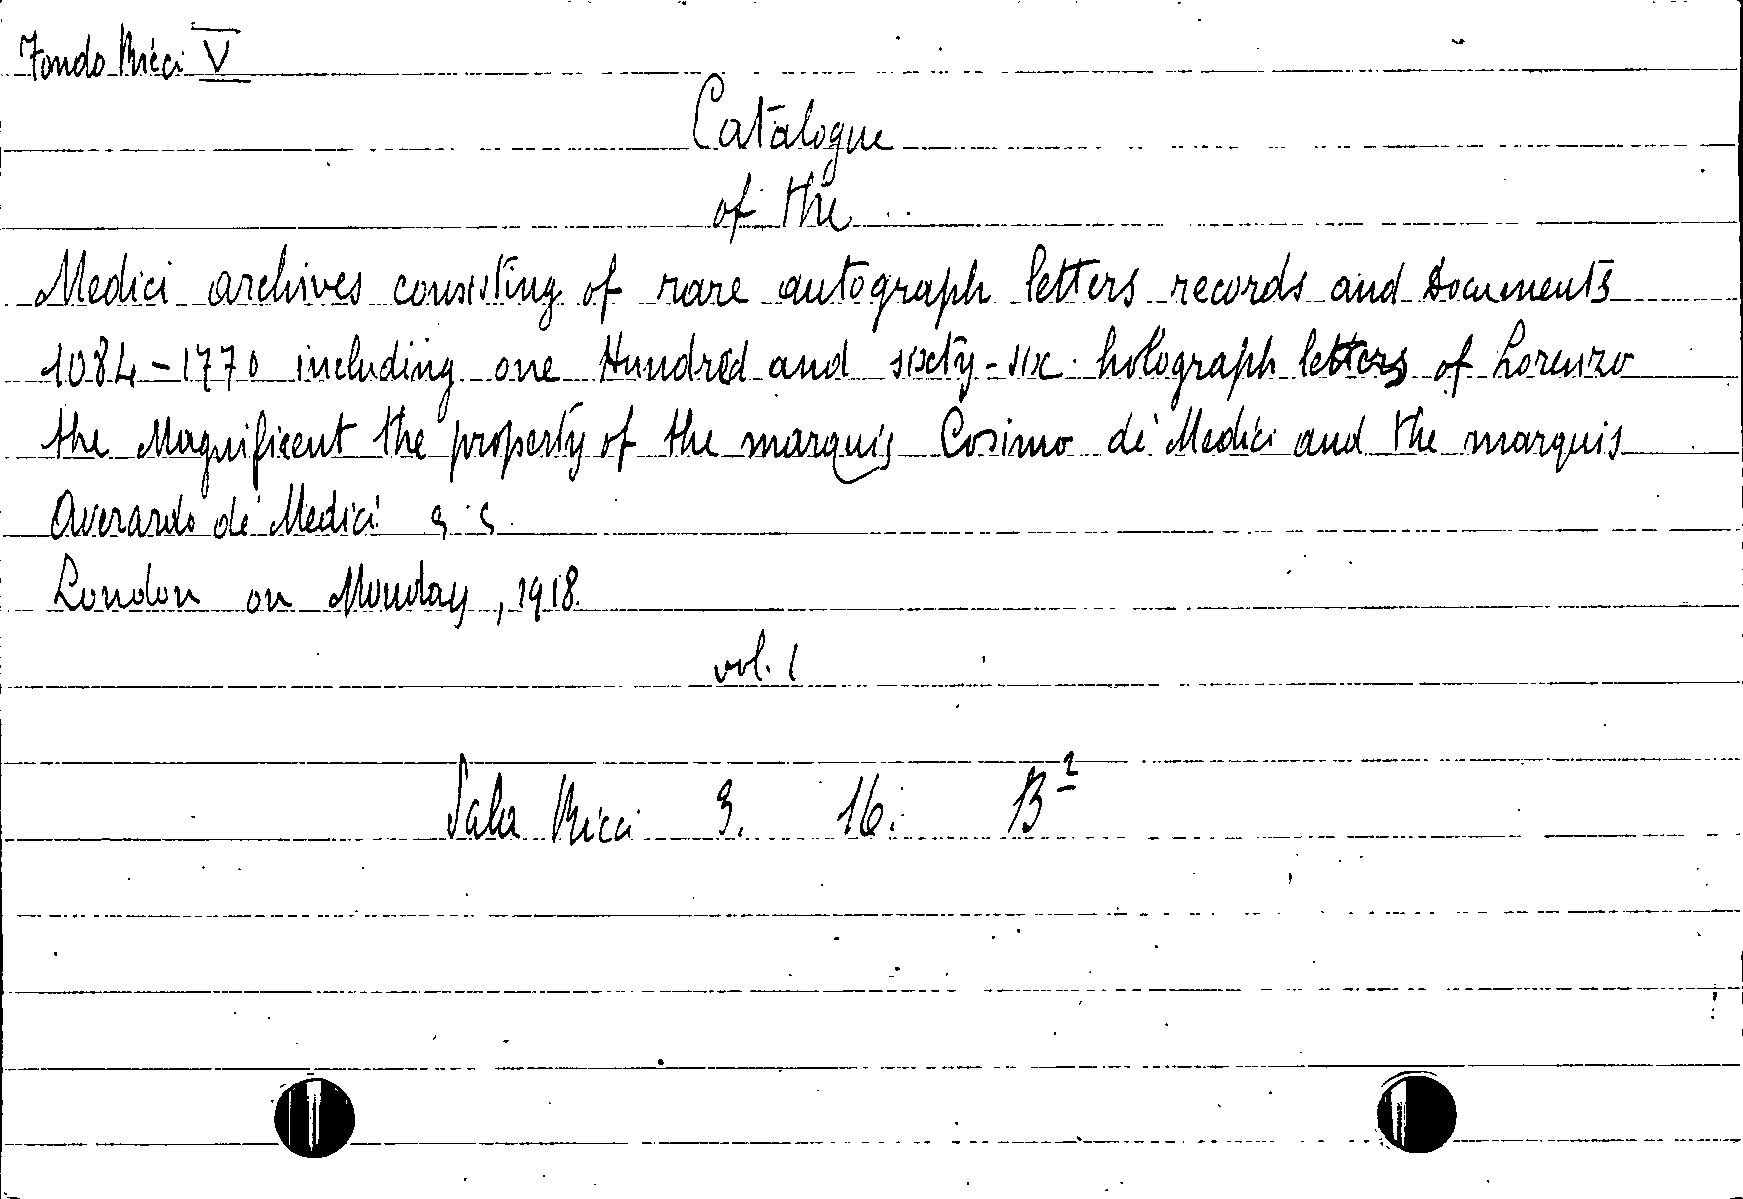 Fondo Ricci V
Catalogue
of the
Medici archives consisting of rare autograph letters records and Documents
1084-1770 including one Hundred and sixty-six holograph letters of Lorenzo
the Magnificent the property of the marquis Cosimo de' Medici and the marquis
Averardo de' Medici
London on Monday, 1918.
vol. 1
Sala Ricci 3. 16. B²